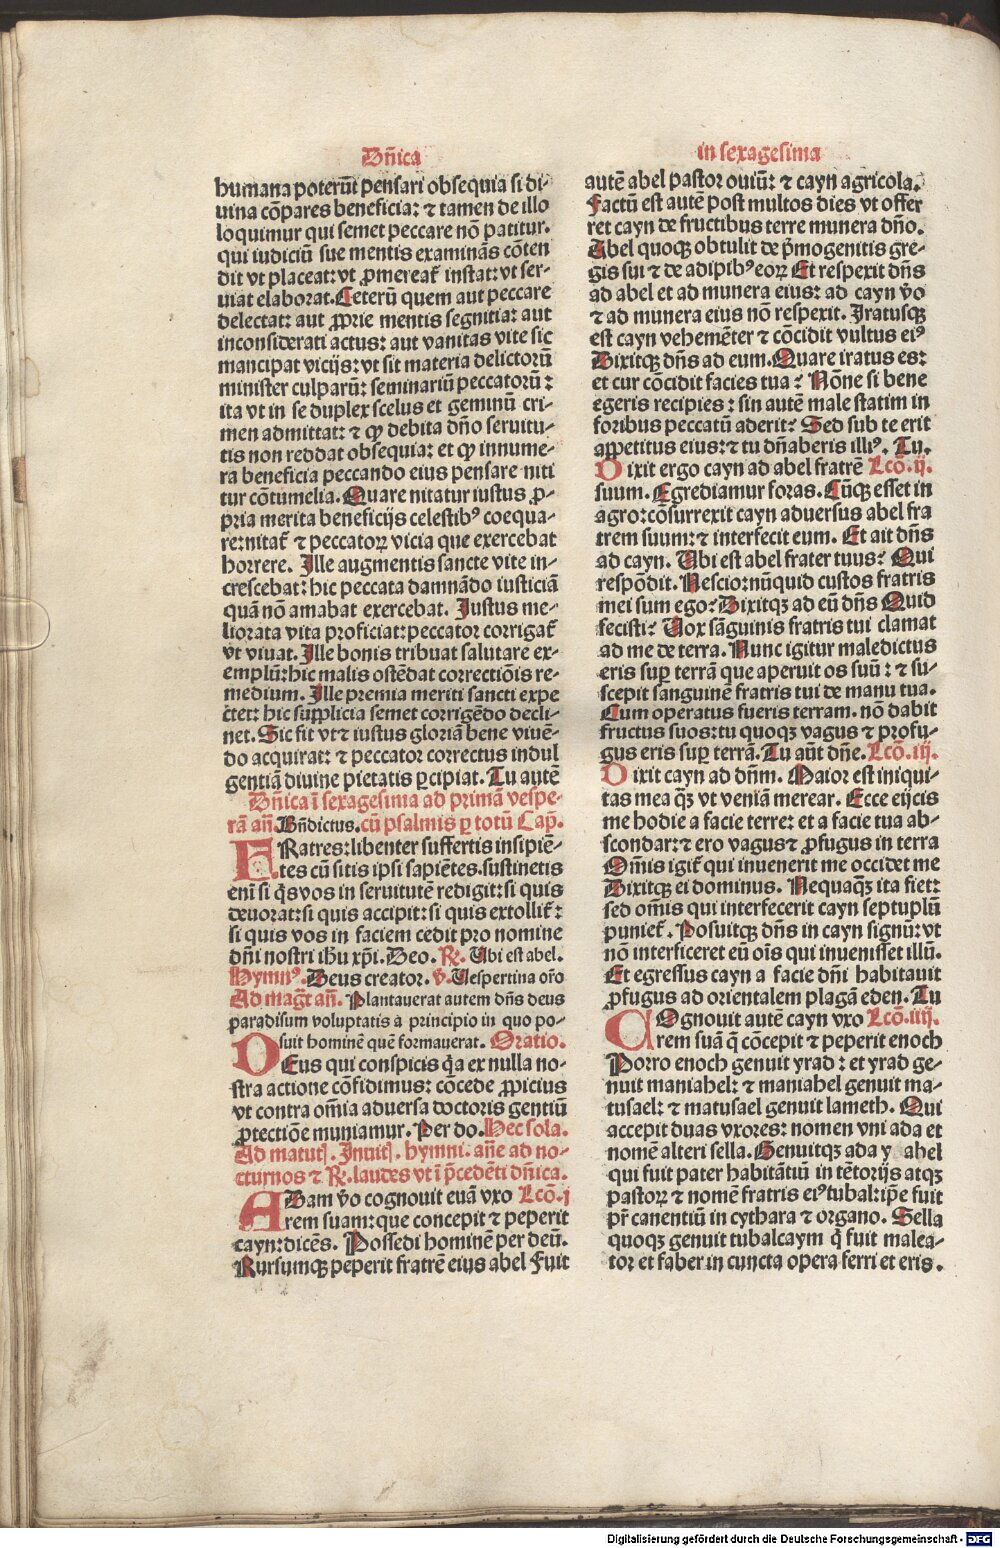 Dñica
humana poterũt pensari obsequia si di-
uina cõpares beneficia: ⁊ tamen de illo
loquimur qui semet peccare nõ patitur.
qui iudiciũ sue mentis examinãs cõten
dit vt placeat: vt ꝓmereat̃ instat: vt ser-
uiat elaborat. Ceterũ quem aut peccare
delectat: aut ꝓprie mentis segnitia: aut
inconsiderati actus: aut vanitas vite sic
mancipat vicijs: vt sit materia delictorũ
minister culparũ: seminariũ peccatorũ:
ita vt in se duplex scelus et geminũ cri-
men admittat: ⁊ ꝙ debita dño seruitu-
tis non reddat obsequia: et ꝙ innume-
ra beneficia peccando eius pensare niti
tur cõtumelia. Quare nitatur iustus ꝓ-
pria merita beneficijs celestibꝰ coequa-
re: nitat̃ ⁊ peccatoꝝ vicia que exercebat
horrere. Ille augmentis sancte vite in-
crescebat: hic peccata damnãdo iusticiã
quã nõ amabat exercebat. Iustus me-
liorata vita proficiat: peccator corrigat̃
vt viuat. Ille bonis tribuat salutare ex-
emplũ: hic malis ostẽdat correctiõis re-
medium. Ille premia meriti sancti expe
ctet: hic supplicia semet corrigẽdo decli-
net. Sic fit vt ⁊ iustus gloriã bene viuẽ-
do acquirat: ⁊ peccator correctus indul
gentiã diuine pietatis ꝑcipiat. Tu autẽ
Dñica ĩ sexagesima ad primã vespe-
rã añ. Bñdictus. cũ psalmis ꝑ totũ Cap̃.
FRatres: libenter suffertis insipiẽ-
tes cũ sitis ipsi sapiẽtes. sustinetis
enĩ si q̃s vos in seruitutẽ redigit: si quis
deuorat: si quis accipit: si quis extollit̃:
si quis vos in faciem cedit pro nomine
dñi nostri ihũ xp̃i. Deo. ℟. Ubi est abel.
Hymnꝰ. Deus creator. ℣. Uespertina oĩo
Ad mag̃t añ. Plantauerat autem dñs deus
paradisum voluptatis a principio in quo po-
suit hominẽ quẽ formauerat. Oratio.
DEus qui conspicis q̃a ex nulla no-
stra actione cõfidimus: cõcede ꝓpicius
vt contra om̃ia aduersa doctoris gentiũ
ꝓtectiõe muniamur. Per do. Hec sola.
Ad matut̃. Inuit̃. hymni. añe ad no-
cturnos ⁊ ℟. laudes vt ĩ p̃cedẽti dñica.
ADam ṽo cognouit euã vxo Lcõ. j
rem suam: que concepit ⁊ peperit
cayn: dicẽs. Possedi hominẽ per deũ.
Rursumqꝫ peperit fratrẽ eius abel Fuit
in sexagesima
autẽ abel pastor ouiũ: ⁊ cayn agricola.
Factũ est autẽ post multos dies vt offer
ret cayn de fructibus terre munera dño.
Abel quoqꝫ obtulit de p̃mogenitis gre-
gis sui ⁊ de adipibꝰ eoꝝ Et respexit dñs
ad abel et ad munera eius: ad cayn ṽo
⁊ ad munera eius nõ respexit. Iratusqꝫ
est cayn vehemẽter ⁊ cõcidit vultus eiꝰ
Dixitqꝫ dñs ad eum. Quare iratus es:
et cur cõcidit facies tua? Nõne si bene
egeris recipies: sin autẽ male statim in
foribus peccatũ aderit? Sed sub te erit
appetitus eius: ⁊ tu dñaberis illiꝰ. Tu.
DIxit ergo cayn ad abel fratrẽ Lcõ. ij.
suum. Egrediamur foras. Cũqꝫ esset in
agro: cõsurrexit cayn aduersus abel fra
trem suum: ⁊ interfecit eum. Et ait dñs
ad cayn. Ubi est abel frater tuus? Qui
respõdit. Nescio: nũquid custos fratris
mei sum ego? Dixitqꝫ ad eũ dñs Quid
fecisti? Uox sãguinis fratris tui clamat
ad me de terra. Nunc igitur maledictus
eris suꝑ terrã que aperuit os suũ: ⁊ su-
scepit sanguinẽ fratris tui de manu tua.
Cum operatus fueris terram. nõ dabit
fructus suos: tu quoqꝫ vagus ⁊ profu-
gus eris suꝑ terrã. Tu aũt dñe. Lcõ. iij.
DIxit cayn ad dñm. Maior est iniqui-
tas mea q̃ꝫ vt veniã merear. Ecce eijcis
me hodie a facie terre: et a facie tua ab-
scondar: ⁊ ero vagus ⁊ ꝓfugus in terra
Om̃is igit̃ qui inuenerit me occidet me
Dixitqꝫ ei dominus. Nequaq̃ꝫ ita fiet:
sed om̃is qui interfecerit cayn septuplũ
puniet̃. Posuitqꝫ dñs in cayn signũ: vt
nõ interficeret eũ oĩs qui inuenisset illũ.
Et egressus cayn a facie dñi habitauit
ꝓfugus ad orientalem plagã eden. Tu
COgnouit autẽ cayn vxo Lcõ. iiij.
rem suã q̃ cõcepit ⁊ peperit enoch
Porro enoch genuit yrad: et yrad ge-
nuit maniahel: ⁊ maniahel genuit ma-
tusael: ⁊ matusael genuit lameth. Qui
accepit duas vxores: nomen vni ada et
nomẽ alteri sella. Genuitqꝫ ada y ahel
qui fuit pater habitãtiũ in tẽtorijs atqꝫ
pastoꝝ ⁊ nomẽ fratris eiꝰ tubal: ip̃e fuit
pr̃ canentiũ in cythara ⁊ organo. Sella
quoqꝫ genuit tubalcaym q̃ fuit malea-
tor et faber in cuncta opera ferri et eris.
Digitalisierung gefördert durch die Deutsche Forschungsgemeinschaft - DFG